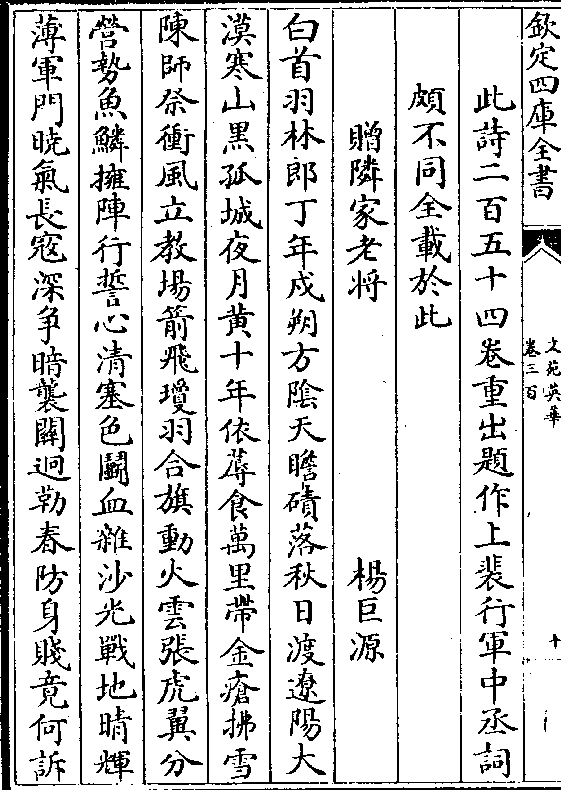 欽定四庫全書
文苑英華
卷三百
十
此詩二百五十四卷重出題作上裴行軍中丞詞
頗不同全載於此
贈隣家老将 楊巨源
白首羽林郎丁年戍朔方陰天瞻磧落秋日渡遼陽大
漠寒山黒孤城夜月黄十年依蓐食萬里帶金瘡拂雪
陳師祭衝風立教場箭飛瓊羽合旗動火雲張虎翼分
營勢魚鱗擁陣行誓心清塞色鬭血雜沙光戰地晴輝
薄軍門曉氣長寇深争暗襲關迥勒春防身賤竟何訴